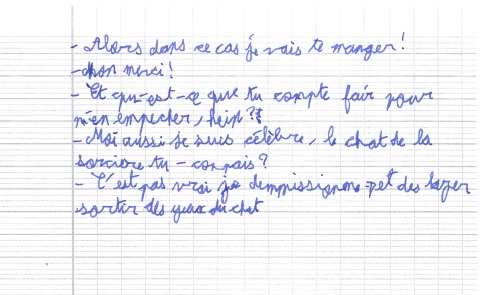 - Alors dans ce cas je vais te manger!
- non merci!
- Et qu-est-ce que tu compte fair pour
m'en empecher, hein?
- Moi aussi je suis célèbre, le chat de la
sorciere tu - connais?
- C'est pas vrai je et des lazer
sortir des yeux du chat